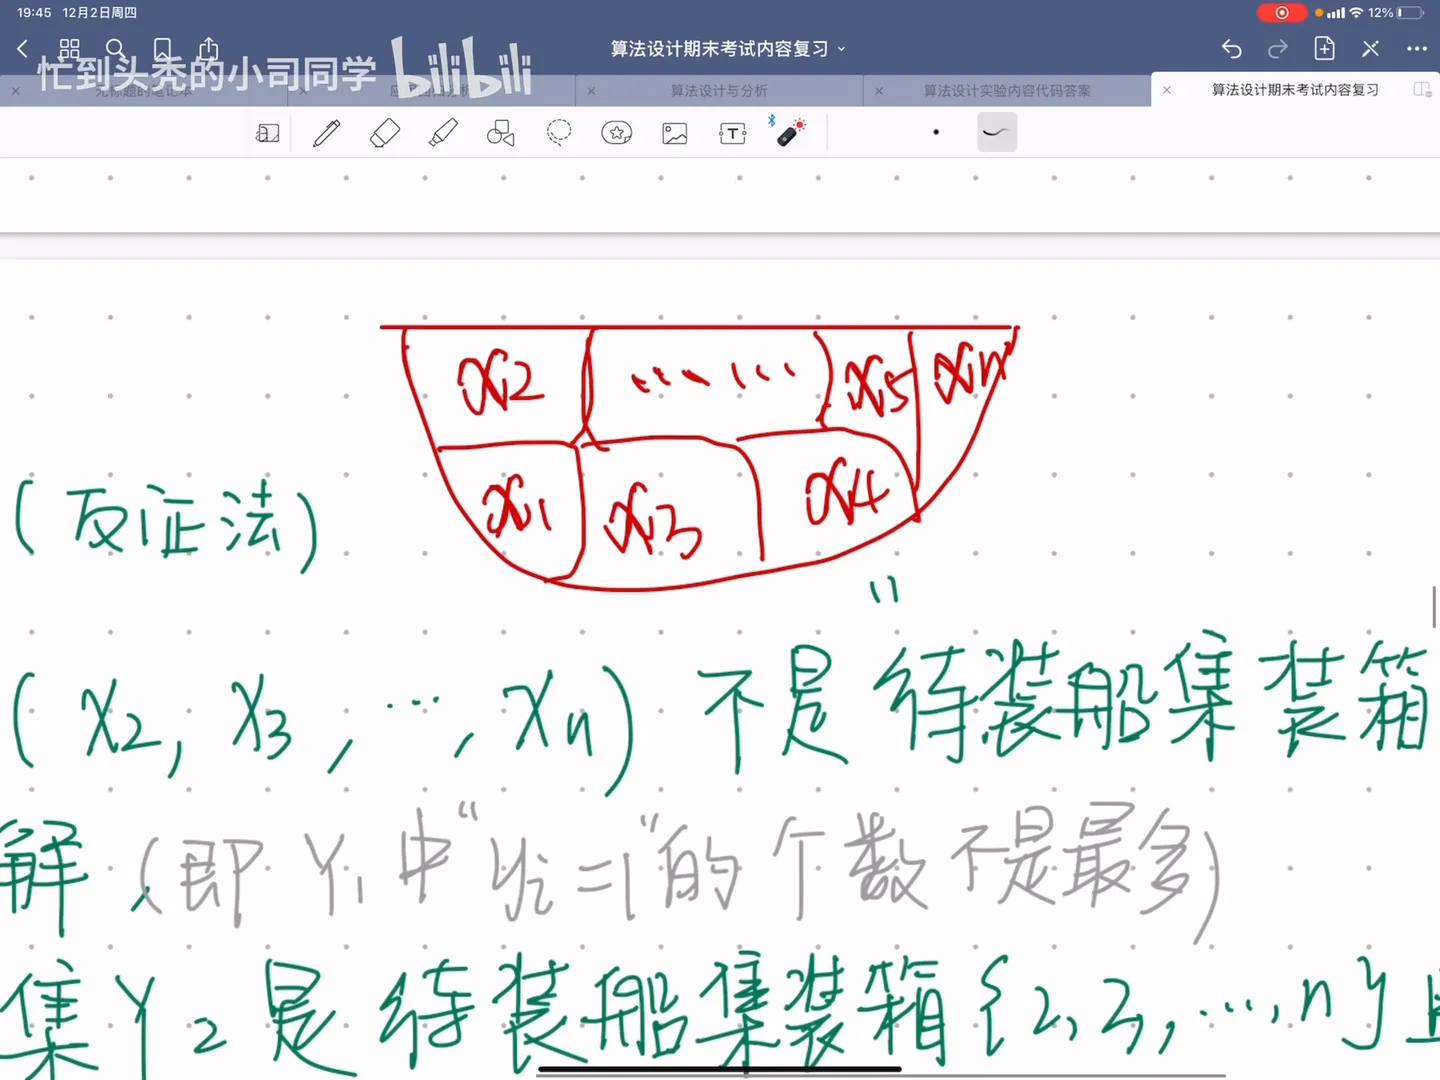 19:45 12月2日周四
12%
算法设计期末考试内容复习
忙到头秃的小司同学 bilibili
无标题的笔记本
算法设计与分析
算法设计实验内容代码答案
算法设计期末考试内容复习
x2 …… x5 xn
x1 x3 x4
(反证法)
(x2, x3, …, xn) 不是待装船集装箱
解 (即 Y1 中“yi=1”的个数不是最多)
集 Y2 是待装船集装箱{2,3,…,n}且